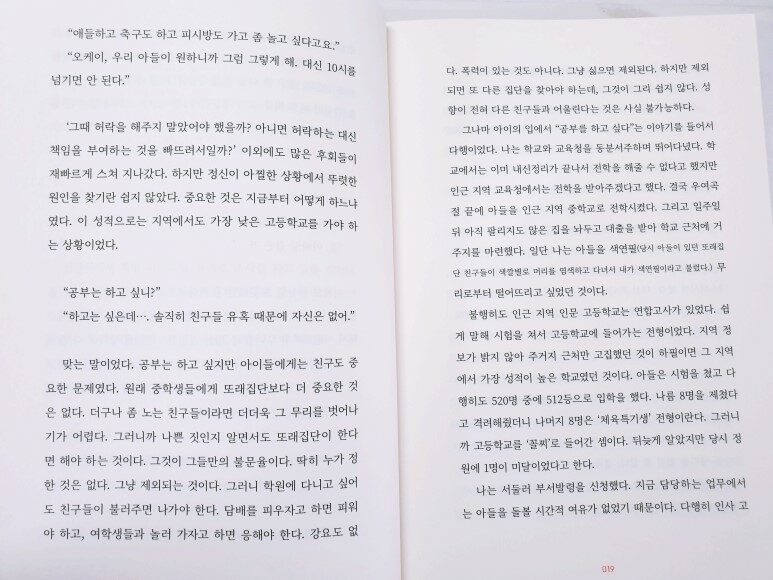 “애들하고 축구도 하고 피시방도 가고 좀 놀고 싶다고요.”
“오케이, 우리 아들이 원하니까 그럼 그렇게 해. 대신 10시를
넘기면 안 된다.”
‘그때 허락을 해주지 말았어야 했을까? 아니면 허락하는 대신
책임을 부여하는 것을 빠뜨려서일까?’ 이외에도 많은 후회들이
재빠르게 스쳐 지나갔다. 하지만 정신이 아찔한 상황에서 뚜렷한
원인을 찾기란 쉽지 않았다. 중요한 것은 지금부터 어떻게 하느냐
였다. 이 성적으로는 지역에서도 가장 낮은 고등학교를 가야 하
는 상황이었다.
“공부는 하고 싶니?”
“하고는 싶은데…. 솔직히 친구들 유혹 때문에 자신은 없어.”
맞는 말이었다. 공부는 하고 싶지만 아이들에게는 친구도 중
요한 문제였다. 원래 중학생들에게 또래집단보다 더 중요한 것
은 없다. 더구나 좀 노는 친구들이라면 더더욱 그 무리를 벗어나
기가 어렵다. 그러니까 나쁜 짓인지 알면서도 또래집단이 한다
면 해야 하는 것이다. 그것이 그들만의 불문율이다. 딱히 누가 정
한 것은 없다. 그냥 제외되는 것이다. 그러니 학원에 다니고 싶어
도 친구들이 불러주면 나가야 한다. 담배를 피우자고 하면 피워
야 하고, 여학생들과 놀러 가자고 하면 응해야 한다. 강요도 없
다. 폭력이 있는 것도 아니다. 그냥 싫으면 제외된다. 하지만 제외
되면 또 다른 집단을 찾아야 하는데, 그것이 그리 쉽지 않다. 성
향이 전혀 다른 친구들과 어울린다는 것은 사실 불가능하다.
그나마 아이의 입에서 “공부를 하고 싶다”는 이야기를 들어서
다행이었다. 나는 학교와 교육청을 동분서주하며 뛰어다녔다. 학
교에서는 이미 내신정리가 끝나서 전학을 해줄 수 없다고 했지만
인근 지역 교육청에서는 전학을 받아주겠다고 했다. 결국 우여곡
절 끝에 아들을 인근 지역 중학교로 전학시켰다. 그리고 일주일
뒤 아직 팔리지도 않은 집을 놔두고 대출을 받아 학교 근처에 거
주지를 마련했다. 일단 나는 아들을 색연필(당시 아들이 있던 또래집
단 친구들이 색깔별로 머리를 염색하고 다녀서 내가 색연필이라고 불렀다.) 무
리로부터 떨어뜨리고 싶었던 것이다.
불행히도 인근 지역 인문 고등학교는 연합고사가 있었다. 쉽
게 말해 시험을 쳐서 고등학교에 들어가는 전형이었다. 지역 정
보가 밝지 않아 주거지 근처만 고집했던 것이 하필이면 그 지역
에서 가장 성적이 높은 학교였던 것이다. 아들은 시험을 쳤고 다
행히도 520명 중에 512등으로 입학을 했다. 나름 8명을 제쳤다
고 격려해줬더니 나머지 8명은 ‘체육특기생’ 전형이란다. 그러니
까 고등학교를 ‘꼴찌’로 들어간 셈이다. 뒤늦게 알았지만 당시 정
원에 1명이 미달이었다고 한다.
나는 서둘러 부서발령을 신청했다. 지금 담당하는 업무에서
는 아들을 돌볼 시간적 여유가 없었기 때문이다. 다행히 인사 고
019